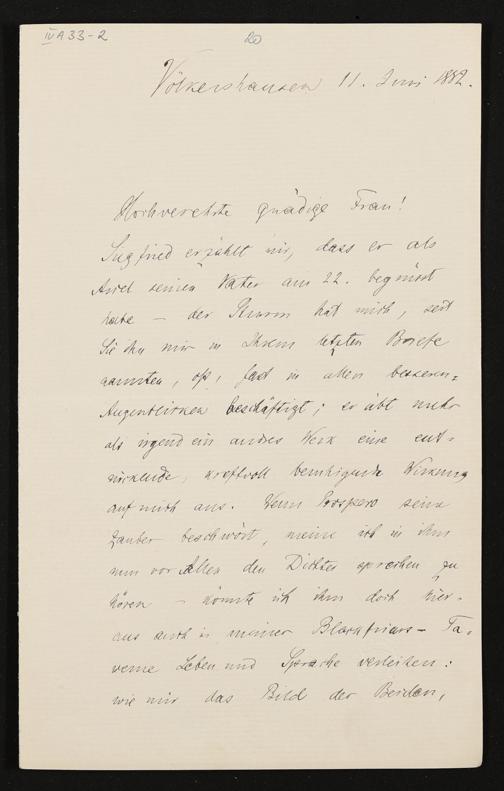 IV A 33-2
20
Völkershausen 11. Juni 1882.
Hochverehrte gnädige Frau!
Siegfried erzählt mir, dass er als
Ariel seinen Vater am 22. begrüsst
habe – der Sturm hat mich, seit
Sie ihn mir in Ihrem letzten Briefe
nannten, oft, fast in allen besseren
Augenblicken beschäftigt; er übt mehr
als irgend ein andres Werk eine ent-
rückende, kraftvoll beruhigende Wirkung
auf mich aus. Wenn Prospero seine
Zauber beschwört, meine ich in ihm
nun vor Allen den Dichter sprechen zu
hören – könnte ich ihm doch hier-
aus auch in meiner Blackfriars-Ta-
verne Leben und Sprache verleihen:
wie mir das Bild der Beiden,